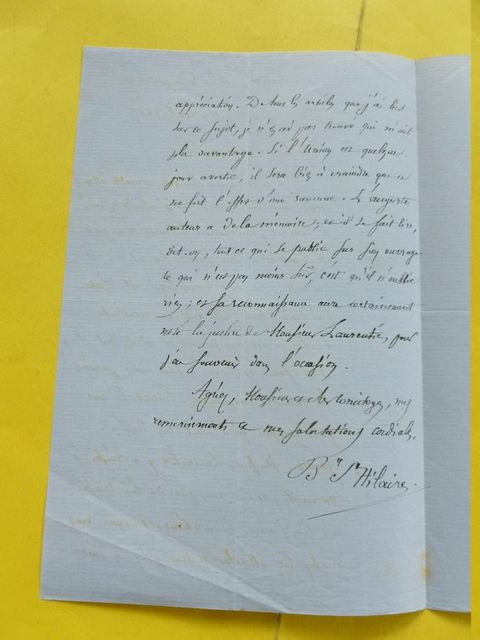 appréciation. De tous les articles que j'ai lus
sur ce sujet, je n'en ai pas trouvé qui m'ait
plu davantage. Si l'Union est quelque
jour avertie, il sera bien à craindre que ce
ne soit l'effet d'une rancune. L'auguste
auteur a de la mémoire; et il se fait lire,
dit-on, tout ce qui se publie sur son ouvrage
ce qui n'est pas moins sûr, c'est qu'il n'oublie
rien; et sa reconnaissance aura certainement
noté la justice de Monsieur Laurentie, pour
s'en souvenir dans l'occasion.
Agréez, Monsieur et cher, mes
remerciements et mes salutations cordiales.
Bmy St Hilaire